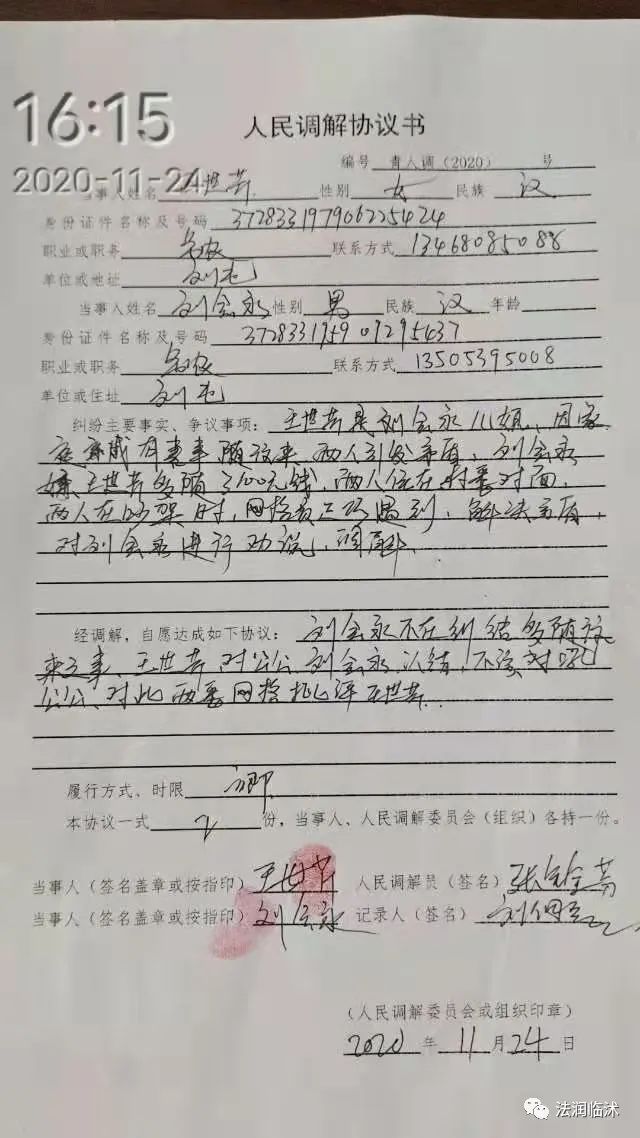 16:15
2020-11-24
人民调解协议书
编号 青人调(2020) 号
当事人姓名 王世芳 性别 女 民族 汉
身份证件名称及号码 372833197906225424
职业或职务 务农 联系方式 13468085088
单位或地址 刘屯
当事人姓名 刘会永 性别 男 民族 汉 年龄
身份证件名称及号码 372833195909295437
职业或职务 务农 联系方式 13505395008
单位或住址 刘屯
纠纷主要事实、争议事项: 王世芳是刘会永儿媳、因家
庭亲戚有喜事随往来、两人引发矛盾、刘会永
嫌王世芳多随了100元钱,两人住在村委对面,
两人在吵架时,网格员正巧遇到,解决矛盾,
对刘会永进行劝说,调解.
经调解,自愿达成如下协议: 刘会永不在纠结多随往
来之事、王世芳对公公刘会永认错,不该对吼
公公、对此两委网格批评王世芳.
履行方式、时限 立即
本协议一式 2 份,当事人、人民调解委员会(组织)各持一份。
当事人(签名盖章或按指印) 王世芳 人民调解员(签名) 张
当事人(签名盖章或按指印) 刘会永 记录人(签名) 刘
(人民调解委员会或组织印章)
2020 年 11 月 24 日
法润临沭